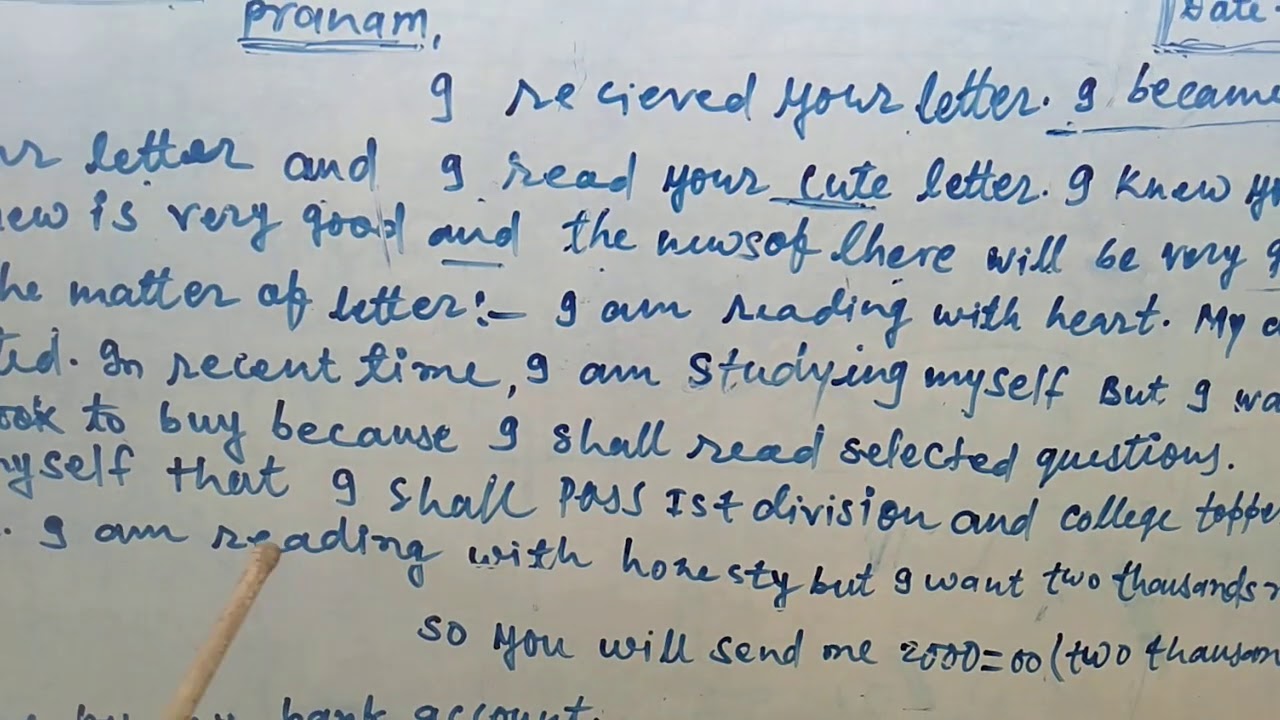 Pranam,
Date-
I recieved your letter. I became
ur letter and I read your cute letter. I knew yo
new is very good and the news of there will be very g
he matter of letter:- I am reading with heart. My
ted. In recent time, I am studying myself But I wa
ook to buy because I shall read selected questions.
myself that I shall pass Ist division and college toppe
. I am reading with honesty but I want two thousands
so you will send me 2000=00 (two thousan
bank account.